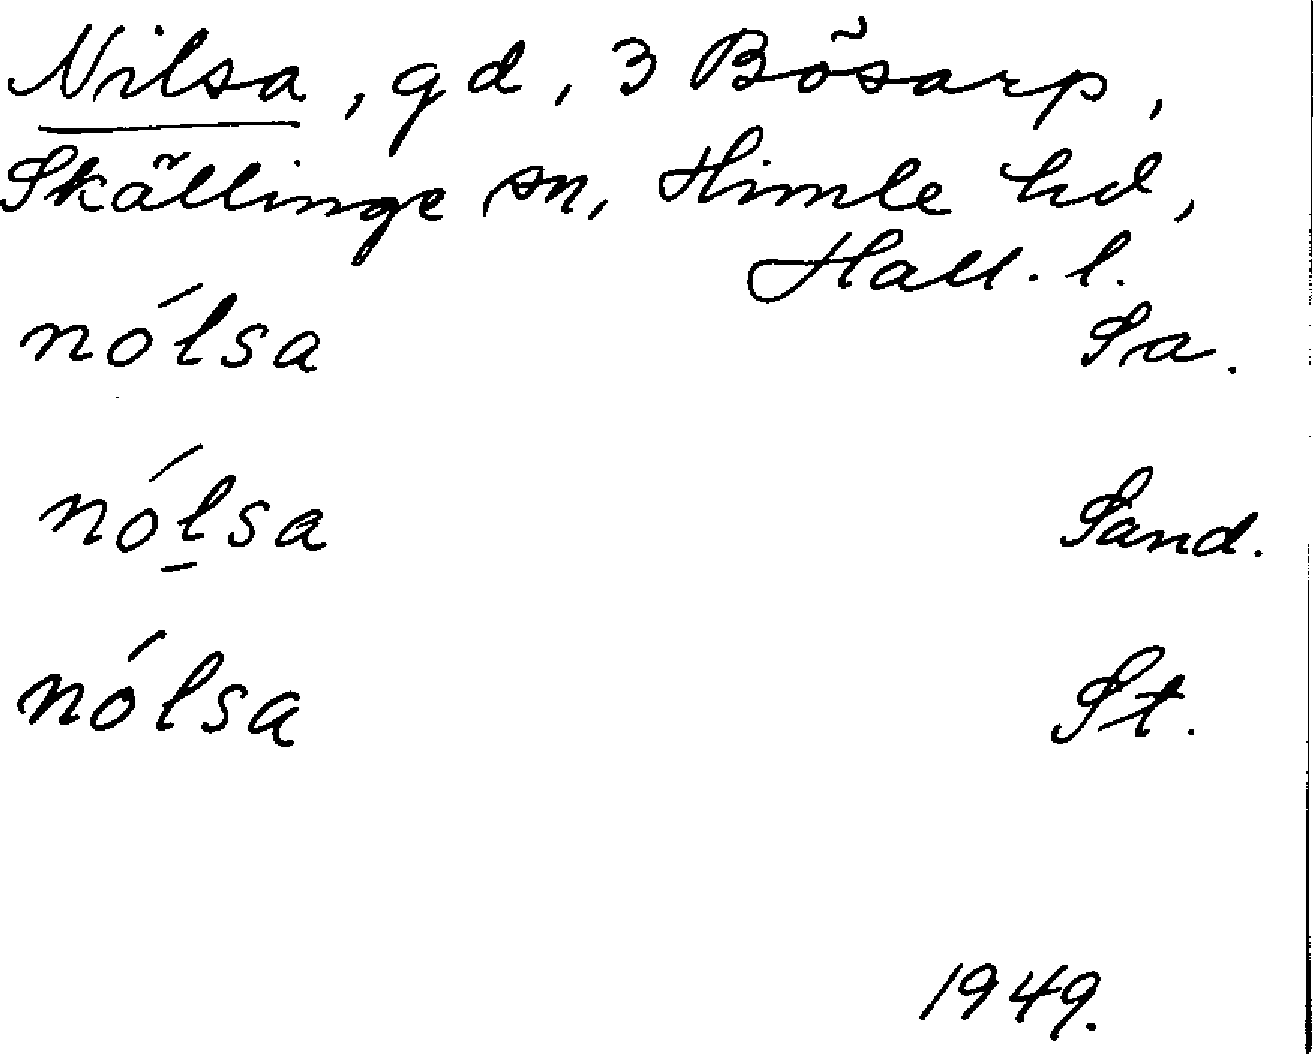 Nilsa, gd, 3 Bösarp,
Skällinge sn, Himle hd,
Hall. l.
nólsa Sa.
nólsa Sand.
nólsa St.
1949.